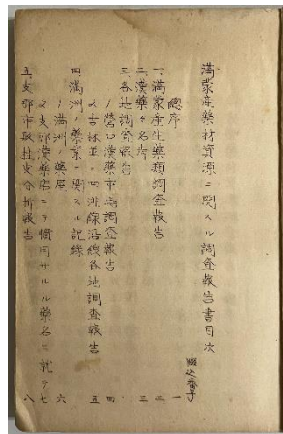 満蒙産薬材資源ニ関スル調査報告書目次
總序 一
一、満蒙産生薬類調査報告 二
二、漢薬ノ名考 三
三、各地調査報告
1 營口漢薬市場調査報告 四
2 吉林並ニ四洮線沿線各地調査報告 五
四、満洲ノ薬業ニ関スル記録
1 満洲ノ薬房 六
2 支那漢薬店ニテ慣用サルル薬名ニ就テ 七
五、支那市販杜史分析報告 八